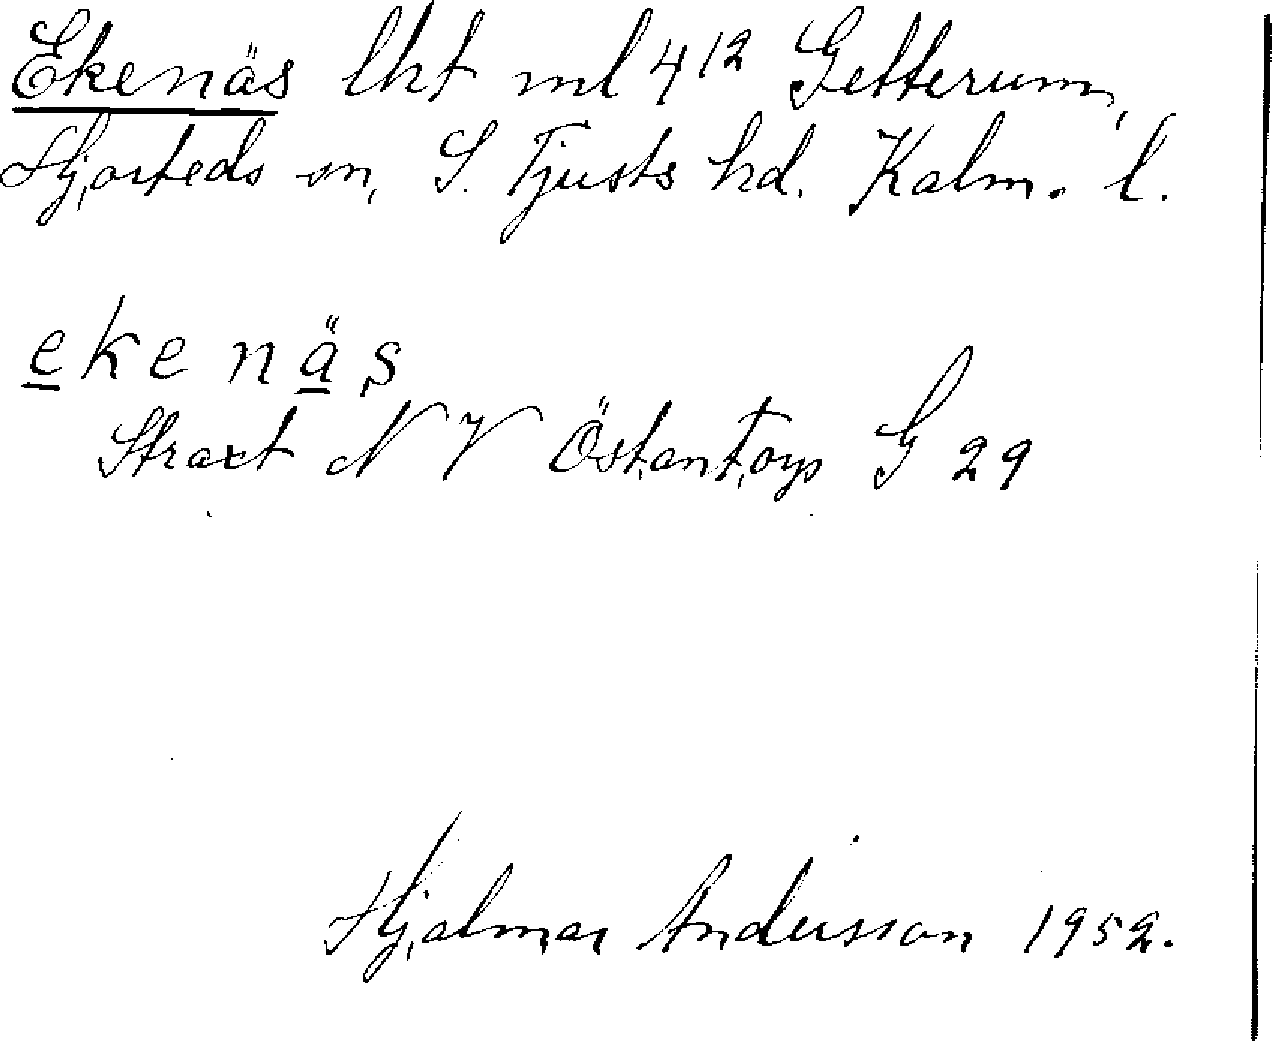 Ekenäs lht ml 4¹² Getterum,
Hjorteds sn, S. Tjusts hd. Kalm. l.
ekenäs
Straxt NV Östantorp G 29
Hjalmar Andersson 1952.